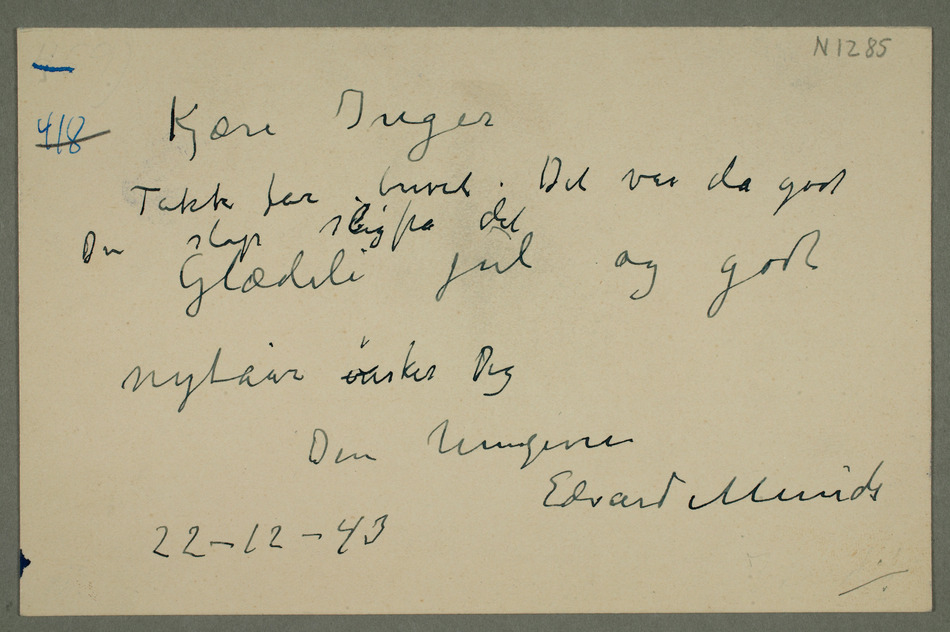 N1285
418
Kjære Inger
Takk for brevet. Det var da godt
Du slap slig fra det
Glædeli jul og godt
nytaar ønsker Dig
Din hengivne
Edvard Munch
22-12-43